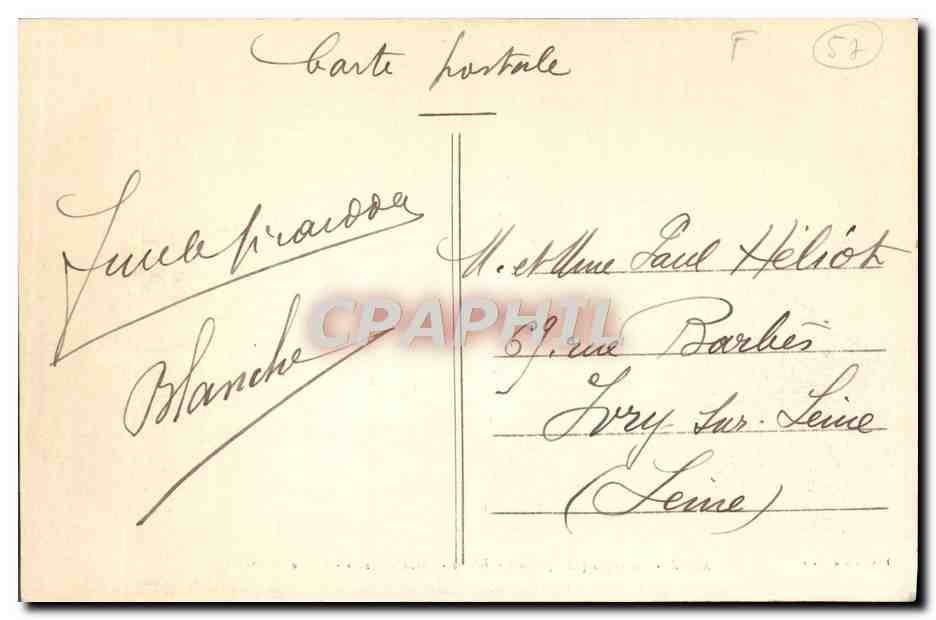 Carte postale
F 57
Girardon
Blanche
CPAPHIL
M. et Mme Paul Héliot
69, rue Barbès
Ivry sur-Seine
(Seine)